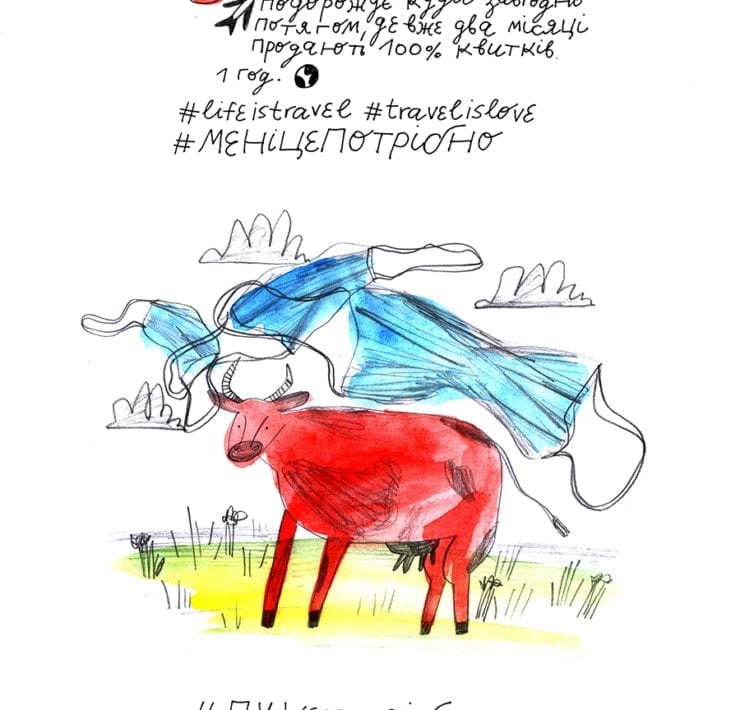 подорожде куди завгодно
потягом, де вже два місяці
продають 100% квитків.
1 год.
#lifeistravel #travelislove
#МЕНІЦЕПОТРІБНО